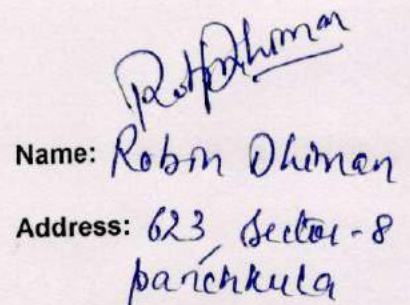 Robin Dhiman
Name: Robin Dhiman
Address: 623, Sector-8
panchkula